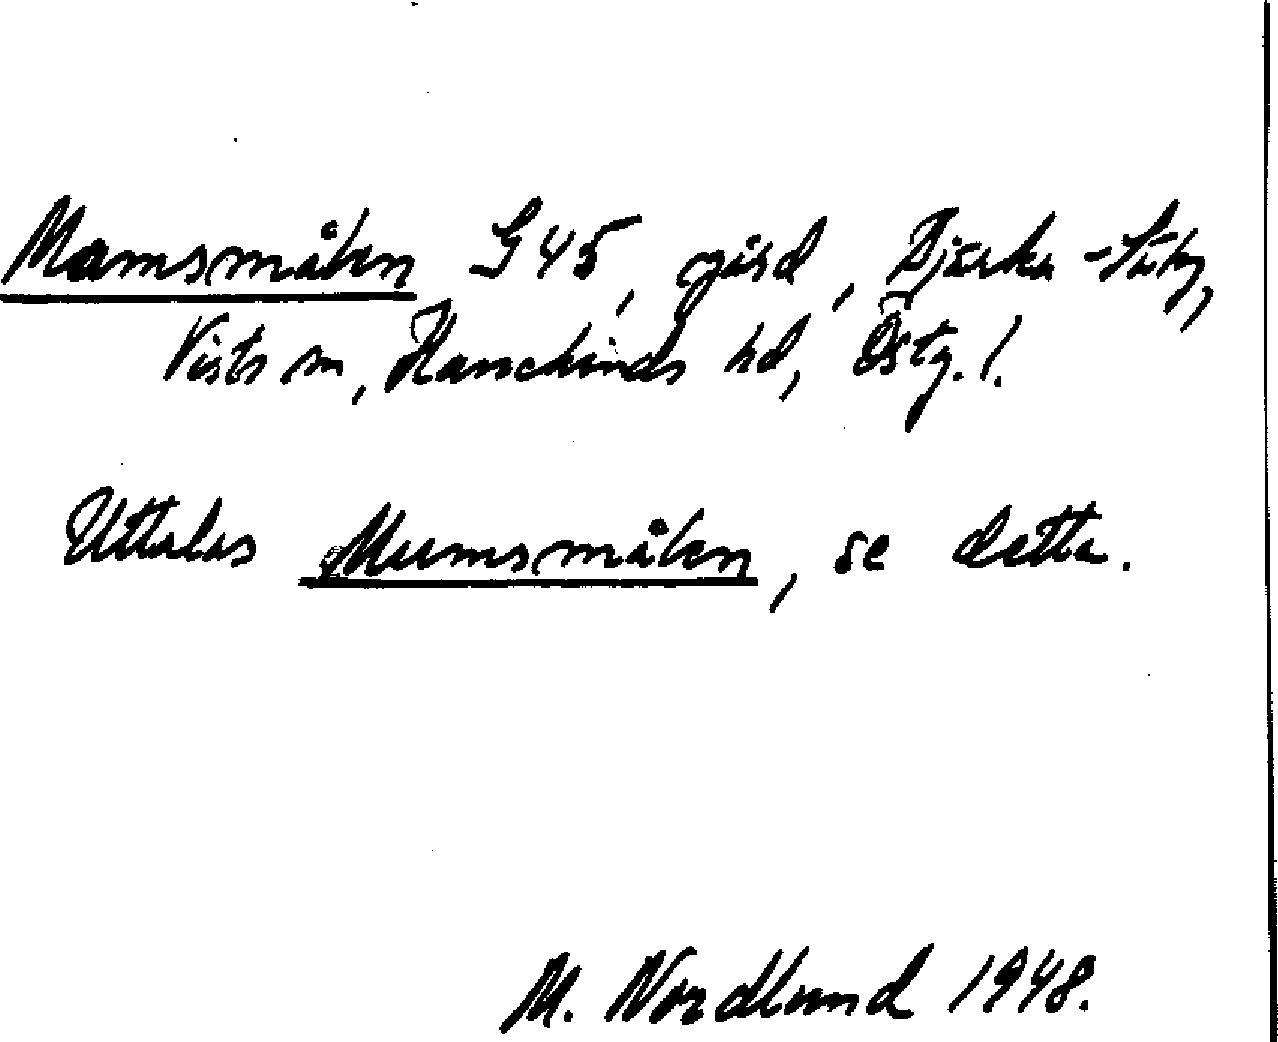 Mamsmålen G45, gård, Bjärka-Säby,
Vists sn, Hanekinds hd, Östg. l.
Uttalas Mumsmålen, se detta.
M. Nordlund 1948.